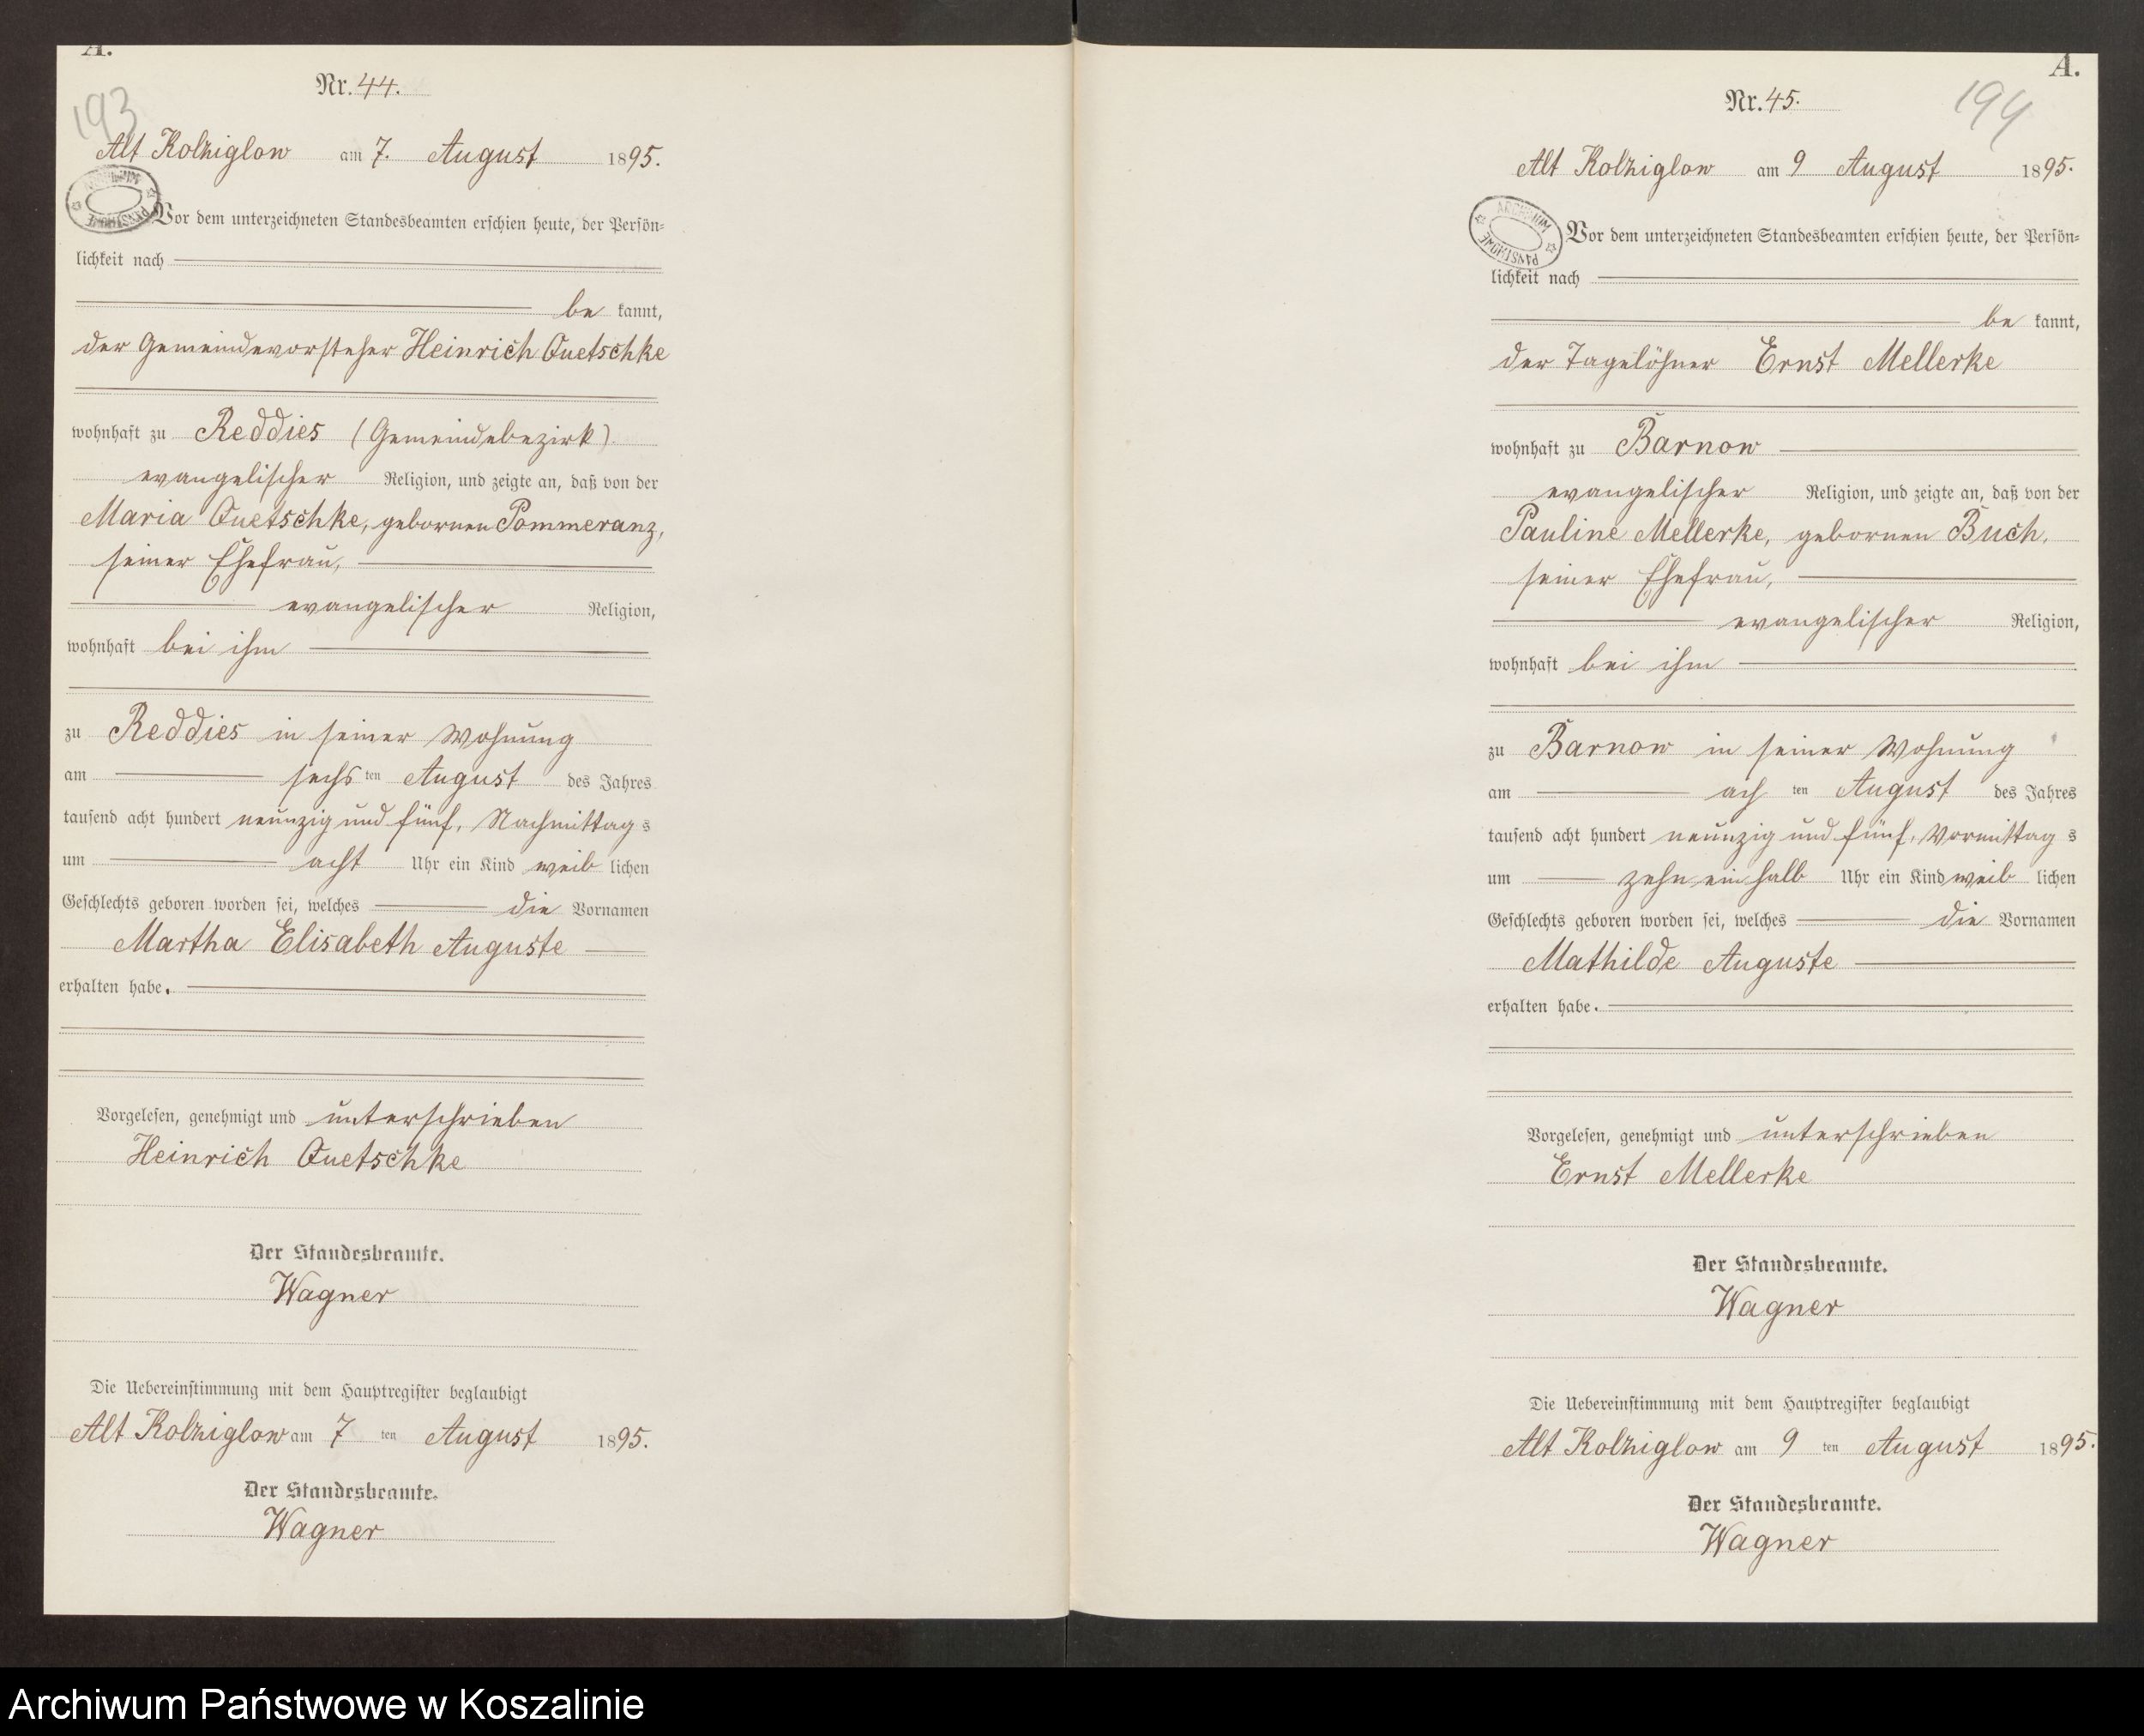 A.
Nr. 44.
193
Alt Kolziglow am 7. August 1895.
ARCHIWUM PAŃSTWOWE
Vor dem unterzeichneten Standesbeamten erschien heute, der Persön=
lichkeit nach
be kannt,
der Gemeindevorsteher Heinrich Quetschke
wohnhaft zu Reddies (Gemeindebezirk)
evangelischer Religion, und zeigte an, daß von der
Maria Quetschke, gebornen Pommeranz,
seiner Ehefrau,
evangelischer Religion,
wohnhaft bei ihm
zu Reddies in seiner Wohnung
am sechs ten August des Jahres
tausend acht hundert neunzig und fünf, Nachmittag s
um acht Uhr ein Kind weib lichen
Geschlechts geboren worden sei, welches die Vornamen
Martha Elisabeth Auguste
erhalten habe.
Vorgelesen, genehmigt und unterschrieben
Heinrich Quetschke
Der Standesbeamte.
Wagner
Die Uebereinstimmung mit dem Hauptregister beglaubigt
Alt Kolziglow am 7 ten August 1895.
Der Standesbeamte.
Wagner
A.
Nr. 45.
194
Alt Kolziglow am 9 August 1895.
ARCHIWUM PAŃSTWOWE
Vor dem unterzeichneten Standesbeamten erschien heute, der Persön=
lichkeit nach
be kannt,
der Tagelöhner Ernst Mellerke
wohnhaft zu Barnow
evangelischer Religion, und zeigte an, daß von der
Pauline Mellerke, gebornen Buch,
seiner Ehefrau,
evangelischer Religion,
wohnhaft bei ihm
zu Barnow in seiner Wohnung
am ach ten August des Jahres
tausend acht hundert neunzig und fünf, Vormittag s
um zehn ein halb Uhr ein Kind weib lichen
Geschlechts geboren worden sei, welches die Vornamen
Mathilde Auguste
erhalten habe.
Vorgelesen, genehmigt und unterschrieben
Ernst Mellerke
Der Standesbeamte.
Wagner
Die Uebereinstimmung mit dem Hauptregister beglaubigt
Alt Kolziglow am 9 ten August 1895.
Der Standesbeamte.
Wagner
Archiwum Państwowe w Koszalinie